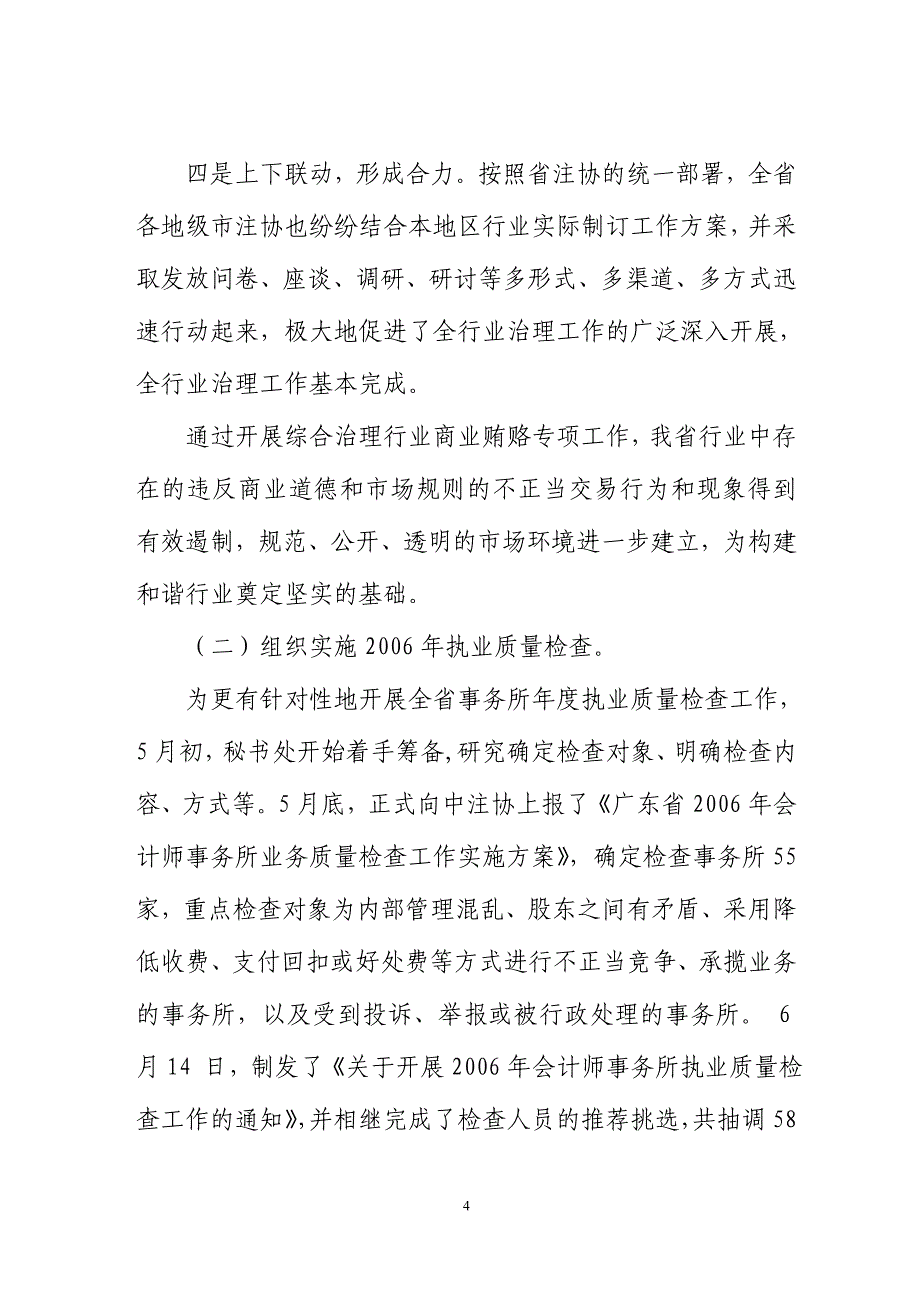 四是上下联动，形成合力。按照省注协的统一部署，全省
各地级市注协也纷纷结合本地区行业实际制订工作方案，并采
取发放问卷、座谈、调研、研讨等多形式、多渠道、多方式迅
速行动起来，极大地促进了全行业治理工作的广泛深入开展，
全行业治理工作基本完成。
通过开展综合治理行业商业贿赂专项工作，我省行业中存
在的违反商业道德和市场规则的不正当交易行为和现象得到
有效遏制，规范、公开、透明的市场环境进一步建立，为构建
和谐行业奠定坚实的基础。
（二）组织实施 2006 年执业质量检查。
为更有针对性地开展全省事务所年度执业质量检查工作，
5 月初，秘书处开始着手筹备,研究确定检查对象、明确检查内
容、方式等。5 月底，正式向中注协上报了《广东省 2006 年会
计师事务所业务质量检查工作实施方案》，确定检查事务所 55
家，重点检查对象为内部管理混乱、股东之间有矛盾、采用降
低收费、支付回扣或好处费等方式进行不正当竞争、承揽业务
的事务所，以及受到投诉、举报或被行政处理的事务所。 6
月 14 日，制发了《关于开展 2006 年会计师事务所执业质量检
查工作的通知》，并相继完成了检查人员的推荐挑选，共抽调 58
4